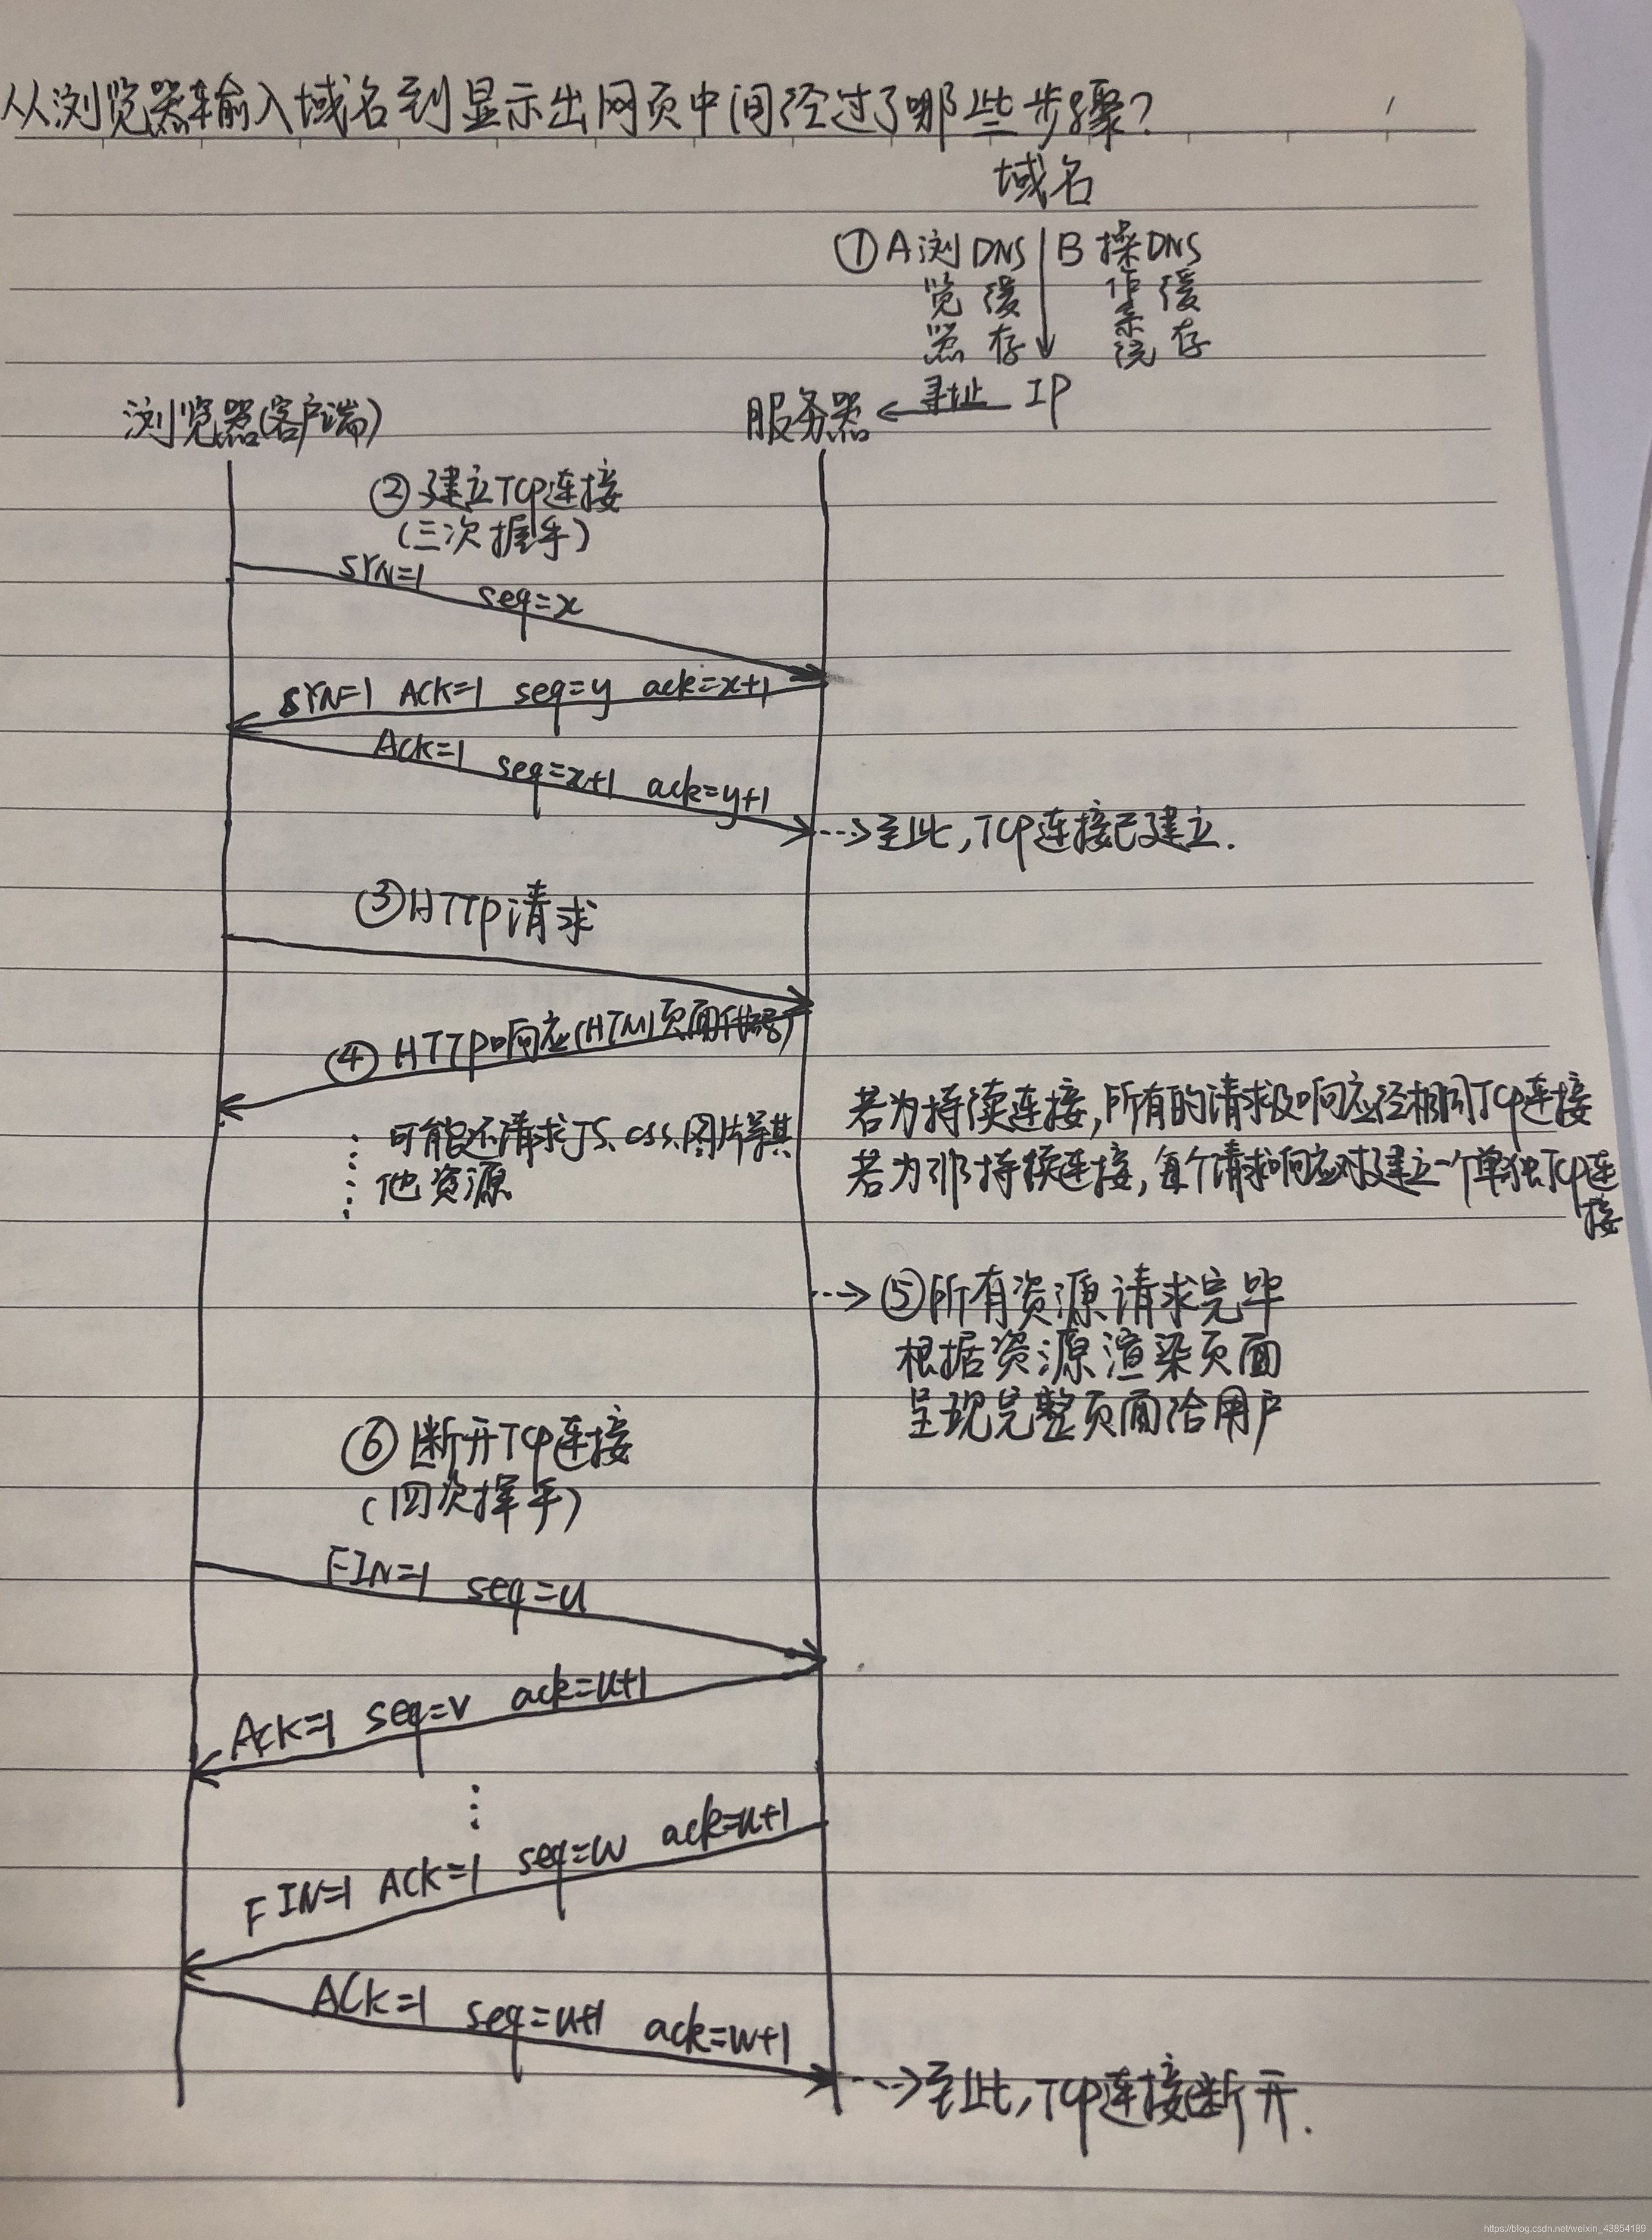 从浏览器输入域名到显示出网页中间经过了哪些步骤?
域名
① A 浏览器 DNS缓存 B 操作系统 DNS缓存
寻址 IP
浏览器(客户端) 服务器
②建立TCP连接
(三次握手)
SYN=1 seq=x
SYN=1 ACK=1 seq=y ack=x+1
ACK=1 seq=x+1 ack=y+1
至此,TCP连接已建立.
③HTTP请求
④ HTTP响应(HTML页面代码)
可能还请求JS、CSS、图片等其
他资源
若为持续连接,所有的请求及响应经相同TCP连接
若为非持续连接,每个请求响应对建立一个单独TCP连
接
⑤所有资源请求完毕
根据资源渲染页面
呈现完整页面给用户
⑥ 断开TCP连接
(四次挥手)
FIN=1 seq=u
ACK=1 seq=v ack=u+1
FIN=1 ACK=1 seq=w ack=u+1
ACK=1 seq=u+1 ack=w+1
至此,TCP连接断开.
https://blog.csdn.net/weixin_43854189